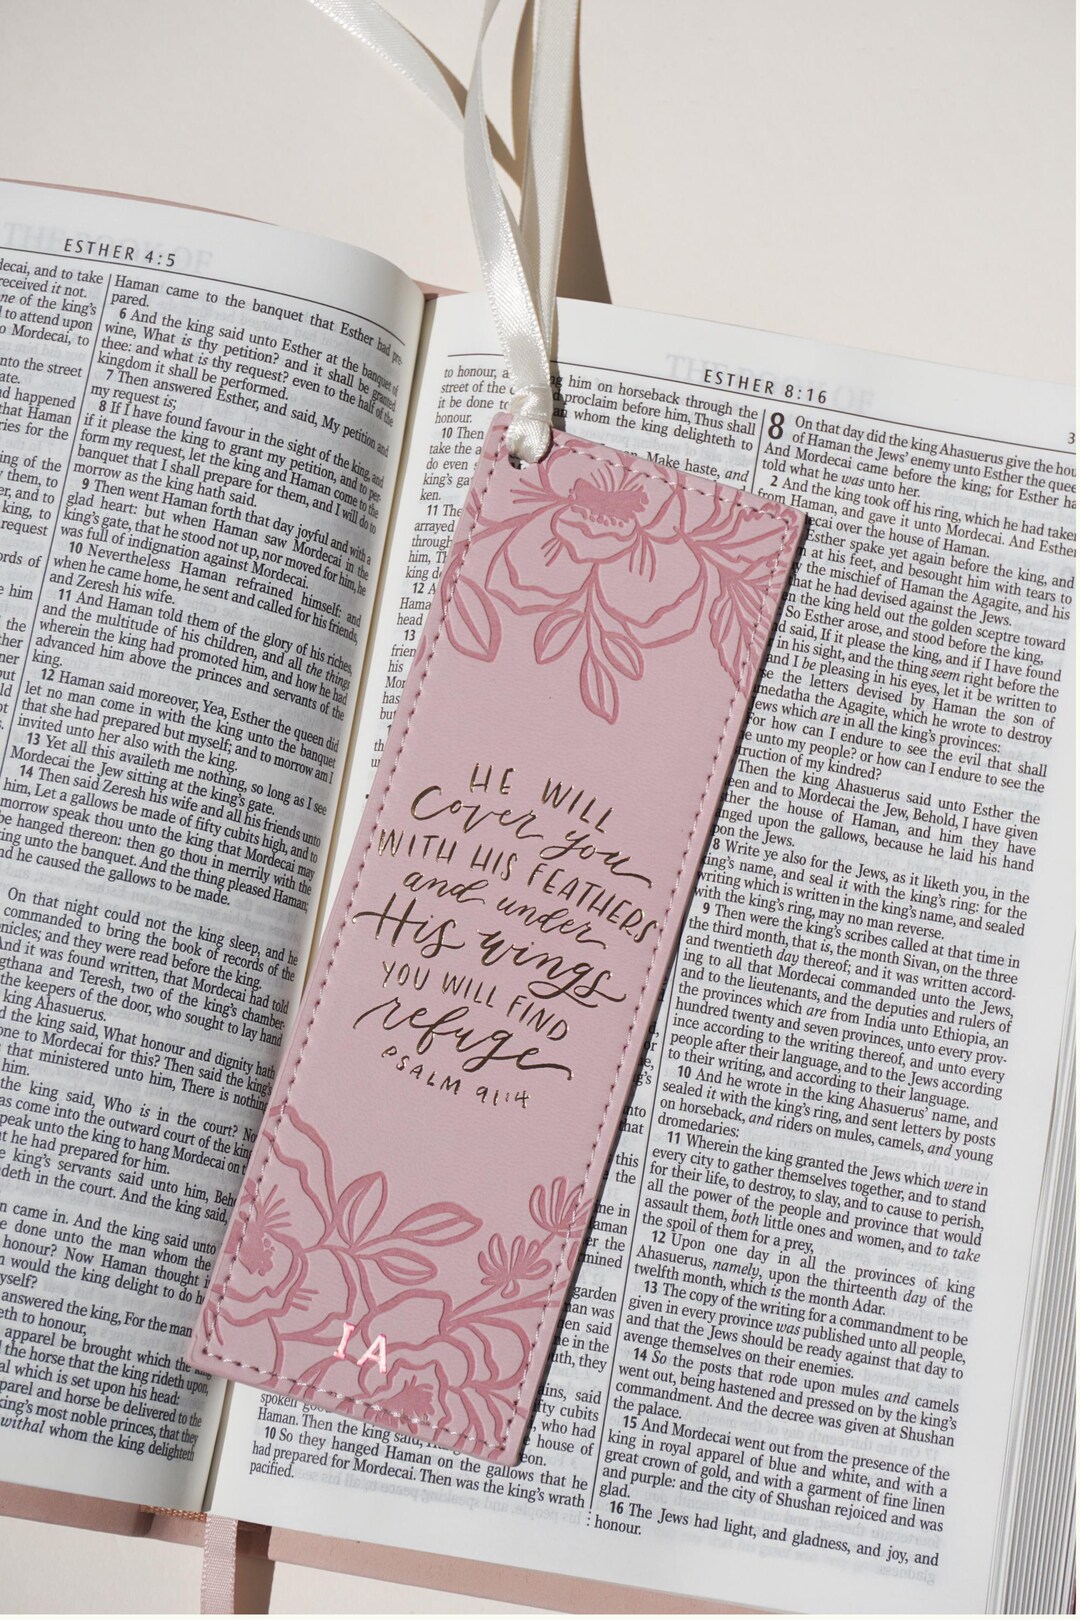 ESTHER 4:5
decai, and to take
received it not.
one of the king's
d to attend upon
o Mordecai, to
nto the street
ate.
d happened
that Haman
ries for the
Haman came to the banquet that Esther had pre-
pared.
6 And the king said unto Esther at the banquet of
wine, What is thy petition? and it shall be granted
thee: and what is thy request? even to the half of the
kingdom it shall be performed.
7 Then answered Esther, and said, My petition and
my request is;
8 If I have found favour in the sight of the king, and
if it please the king to grant my petition, and to per-
form my request, let the king and Haman come to the
banquet that I shall prepare for them, and I will do to
morrow as the king hath said.
9 Then went Haman forth that day joyful and with a
glad heart: but when Haman saw Mordecai in the
king's gate, that he stood not up, nor moved for him, he
was full of indignation against Mordecai.
10 Nevertheless Haman refrained himself: and
when he came home, he sent and called for his friends,
and Zeresh his wife.
11 And Haman told them of the glory of his riches,
and the multitude of his children, and all the things
wherein the king had promoted him, and how he had
advanced him above the princes and servants of the
king.
12 Haman said moreover, Yea, Esther the queen did
let no man come in with the king unto the banquet
that she had prepared but myself; and to morrow am I
invited unto her also with the king.
13 Yet all this availeth me nothing, so long as I see
Mordecai the Jew sitting at the king's gate.
14 Then said Zeresh his wife and all his friends unto
him, Let a gallows be made of fifty cubits high, and to
morrow speak thou unto the king that Mordecai may
be hanged thereon: then go thou in merrily with the
king unto the banquet. And the thing pleased Haman;
and he caused the gallows to be made.
On that night could not the king sleep, and he
commanded to bring the book of records of the
nicles; and they were read before the king.
And it was found written, that Mordecai had told
gthana and Teresh, two of the king's chamber-
the keepers of the door, who sought to lay hand
king Ahasuerus.
d the king said, What honour and dignity hath
one to Mordecai for this? Then said the king's
that ministered unto him, There is nothing
him.
the king said, Who is in the court? No
as come into the outward court of the king
peak unto the king to hang Mordecai on t
t he had prepared for him.
e king's servants said unto him, Beh
deth in the court. And the king said,
n came in. And the king said unto
e done unto the man whom the
honour? Now Haman thought i
would the king delight to do h
yself?
answered the king, For the man
eth to honour,
apparel be brought which the
the horse that the king rideth upon,
al which is set upon his head:
parel and horse be delivered to the
king's most noble princes, that they
withal whom the king delighteth
ESTHER 8:16
to honour, a
street of the c
it be done to
honour.
him on horseback through the
proclaim before him, Thus shall
an whom the king delighteth to
10 Then
Make haste, and
take the a
do even s
king's gat
ken.
11 The
arrayed
through
him, Th
king d
12 A
Hama
13
frien
his
has
but
HE WILL
Cover you
WITH HIS FEATHERS
and under
His wings
YOU WILL FIND
refuge
PSALM 91:4
IA
garden
man was
en said
e in the
uth, they
ins, said
ty cubits
who had
house of
eon.
Haman. Then the king said,
10 So they hanged Haman on the gallows that he
had prepared for Mordecai. Then was the king's wrath
pacified.
8 On that day did the king Ahasuerus give the hou
of Haman the Jews' enemy unto Esther the quee
And Mordecai came before the king; for Esther ha
told what he was unto her.
2 And the king took off his ring, which he had taken
from Haman, and gave it unto Mordecai. And Esther
ecai over the house of Haman.
Esther spake yet again before the king, and
at his feet, and besought him with tears to
y the mischief of Haman the Agagite, and his
hat he had devised against the Jews.
n the king held out the golden sceptre toward
So Esther arose, and stood before the king,
d said, If it please the king, and if I have found
in his sight, and the thing seem right before the
and I be pleasing in his eyes, let it be written to
e the letters devised by Haman the son of
medatha the Agagite, which he wrote to destroy
ews which are in all the king's provinces:
For how can I endure to see the evil that shall
e unto my people? or how can I endure to see the
ruction of my kindred?
Then the king Ahasuerus said unto Esther the
een and to Mordecai the Jew, Behold, I have given
ther the house of Haman, and him they have
nged upon the gallows, because he laid his hand
pon the Jews.
8 Write ye also for the Jews, as it liketh you, in the
king's name, and seal it with the king's ring: for the
writing which is written in the king's name, and sealed
with the king's ring, may no man reverse.
9 Then were the king's scribes called at that time in
the third month, that is, the month Sivan, on the three
and twentieth day thereof; and it was written accord-
ing to all that Mordecai commanded unto the Jews,
and to the lieutenants, and the deputies and rulers of
the provinces which are from India unto Ethiopia, an
hundred twenty and seven provinces, unto every prov-
ince according to the writing thereof, and unto every
people after their language, and to the Jews according
to their writing, and according to their language.
10 And he wrote in the king Ahasuerus' name, and
sealed it with the king's ring, and sent letters by posts
on horseback, and riders on mules, camels, and young
dromedaries:
11 Wherein the king granted the Jews which were in
every city to gather themselves together, and to stand
for their life, to destroy, to slay, and to cause to perish,
all the power of the people and province that would
assault them, both little ones and women, and to take
the spoil of them for a prey,
12 Upon one day in all the provinces of king
Ahasuerus, namely, upon the thirteenth day of the
twelfth month, which is the month Adar.
13 The copy of the writing for a commandment to be
given in every province was published unto all people,
and that the Jews should be ready against that day to
avenge themselves on their enemies.
14 So the posts that rode upon mules and camels
went out, being hastened and pressed on by the king's
commandment. And the decree was given at Shushan
the palace.
15 And Mordecai went out from the presence of the
king in royal apparel of blue and white, and with a
great crown of gold, and with a garment of fine linen
and purple: and the city of Shushan rejoiced and was
glad.
16 The Jews had light, and gladness, and joy, and
honour.